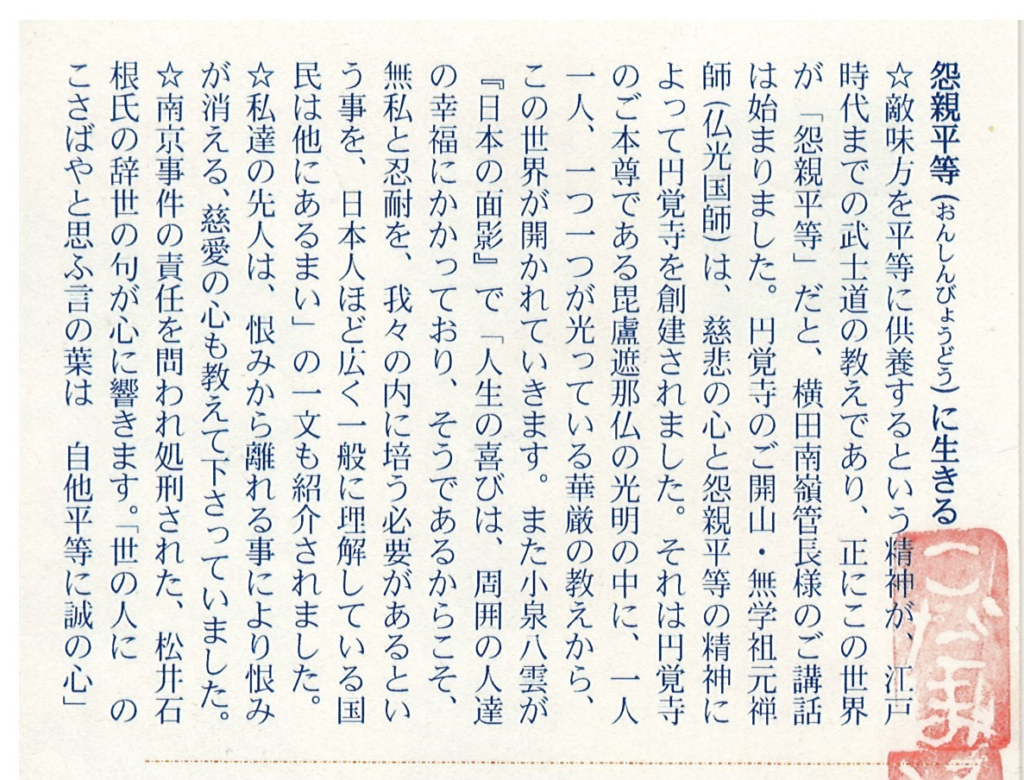 怨親平等(おんしんびょうどう)に生きる
☆敵味方を平等に供養するという精神が、江戸
時代までの武士道の教えであり、正にこの世界
が「怨親平等」だと、横田南嶺管長様のご講話
は始まりました。円覚寺のご開山・無学祖元禅
師(仏光国師)は、慈悲の心と怨親平等の精神に
よって円覚寺を創建されました。それは円覚寺
のご本尊である毘盧遮那仏の光明の中に、一人
一人、一つ一つが光っている華厳の教えから、
この世界が開かれていきます。また小泉八雲が
『日本の面影』で「人生の喜びは、周囲の人達
の幸福にかかっており、そうであるからこそ、
無私と忍耐を、我々の内に培う必要があるとい
う事を、日本人ほど広く一般に理解している国
民は他にあるまい」の一文も紹介されました。
☆私達の先人は、恨みから離れる事により恨み
が消える、慈愛の心も教えて下さっていました。
☆南京事件の責任を問われ処刑された、松井石
根氏の辞世の句が心に響きます。「世の人に の
こさばやと思ふ言の葉は 自他平等に誠の心」